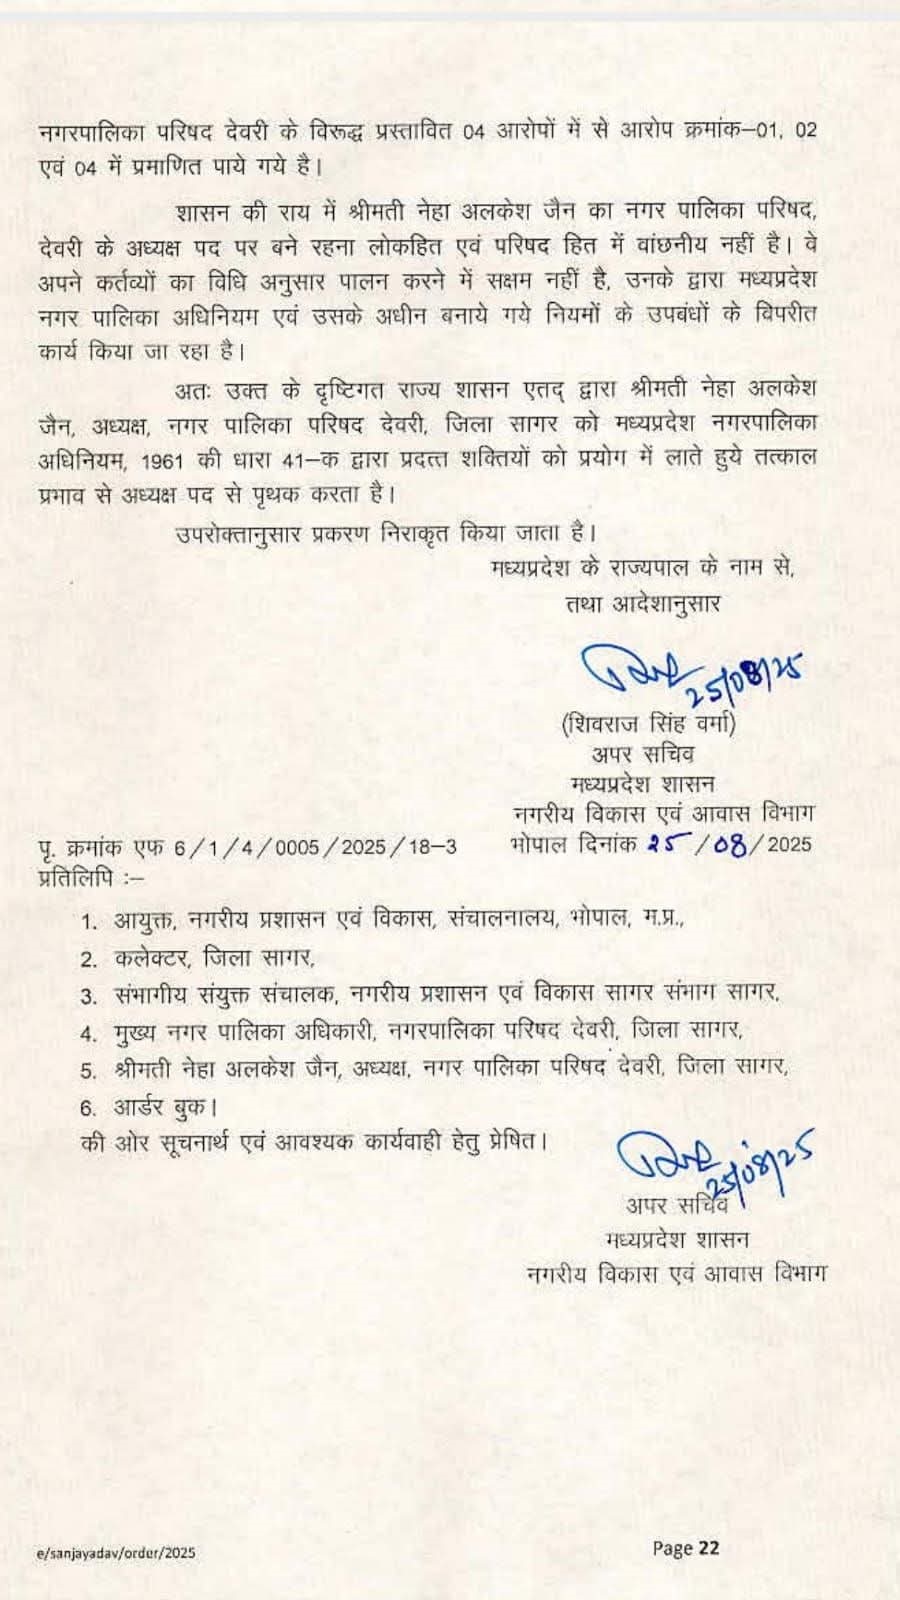 नगरपालिका परिषद देवरी के विरूद्ध प्रस्तावित 04 आरोपों में से आरोप क्रमांक–01, 02
एवं 04 में प्रमाणित पाये गये है।
शासन की राय में श्रीमती नेहा अलकेश जैन का नगर पालिका परिषद,
देवरी के अध्यक्ष पद पर बने रहना लोकहित एवं परिषद हित में वांछनीय नहीं है। वे
अपने कर्तव्यों का विधि अनुसार पालन करने में सक्षम नहीं है, उनके द्वारा मध्यप्रदेश
नगर पालिका अधिनियम एवं उसके अधीन बनाये गये नियमों के उपबंधों के विपरीत
कार्य किया जा रहा है।
अतः उक्त के दृष्टिगत राज्य शासन एतद् द्वारा श्रीमती नेहा अलकेश
जैन, अध्यक्ष, नगर पालिका परिषद देवरी, जिला सागर को मध्यप्रदेश नगरपालिका
अधिनियम, 1961 की धारा 41–क द्वारा प्रदत्त शक्तियों को प्रयोग में लाते हुये तत्काल
प्रभाव से अध्यक्ष पद से पृथक करता है।
उपरोक्तानुसार प्रकरण निराकृत किया जाता है।
मध्यप्रदेश के राज्यपाल के नाम से,
तथा आदेशानुसार
25/08/25
(शिवराज सिंह वर्मा)
अपर सचिव
मध्यप्रदेश शासन
नगरीय विकास एवं आवास विभाग
पृ. क्रमांक एफ 6/1/4/0005/2025/18–3 भोपाल दिनांक 25/08/2025
प्रतिलिपि :–
1. आयुक्त, नगरीय प्रशासन एवं विकास, संचालनालय, भोपाल, म.प्र.,
2. कलेक्टर, जिला सागर,
3. संभागीय संयुक्त संचालक, नगरीय प्रशासन एवं विकास सागर संभाग सागर,
4. मुख्य नगर पालिका अधिकारी, नगरपालिका परिषद देवरी, जिला सागर,
5. श्रीमती नेहा अलकेश जैन, अध्यक्ष, नगर पालिका परिषद देवरी, जिला सागर,
6. आर्डर बुक।
की ओर सूचनार्थ एवं आवश्यक कार्यवाही हेतु प्रेषित।
25/08/25
अपर सचिव
मध्यप्रदेश शासन
नगरीय विकास एवं आवास विभाग
e/sanjayadav/order/2025
Page 22